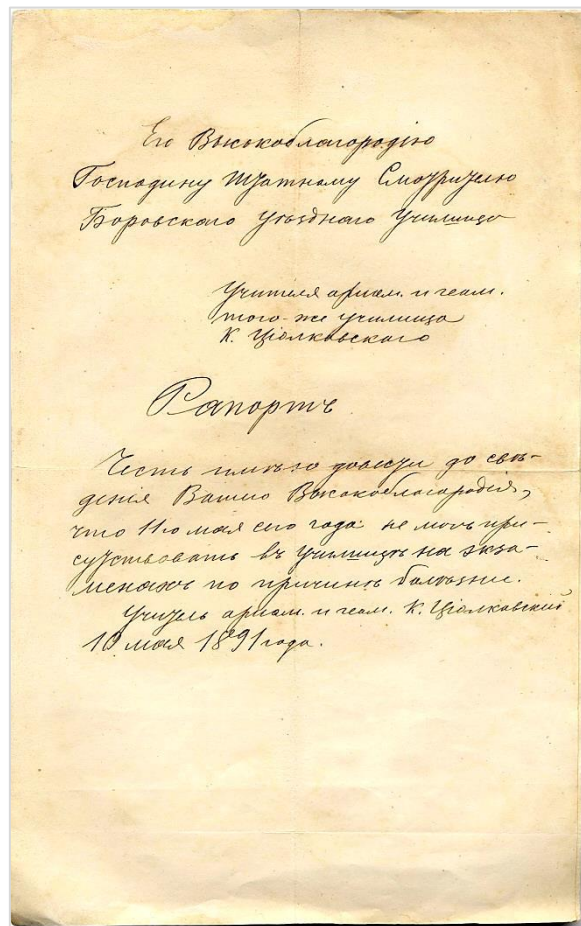 Его Высокоблагородію
Господину Штатному Смотрителю
Боровскаго уѣзднаго Училища
Учителя ариѳм. и геом.
того-же училища
К. Ціолковскаго
Рапортъ
Честь имѣю довести до свѣ-
дѣнія Вашего Высокоблагородія,
что 11го мая сего года не могъ при-
сутствовать въ училищѣ на экза-
менахъ по причинѣ болѣзни.
Учитель ариѳм. и геом. К. Ціолковскій
10 мая 1891 года.